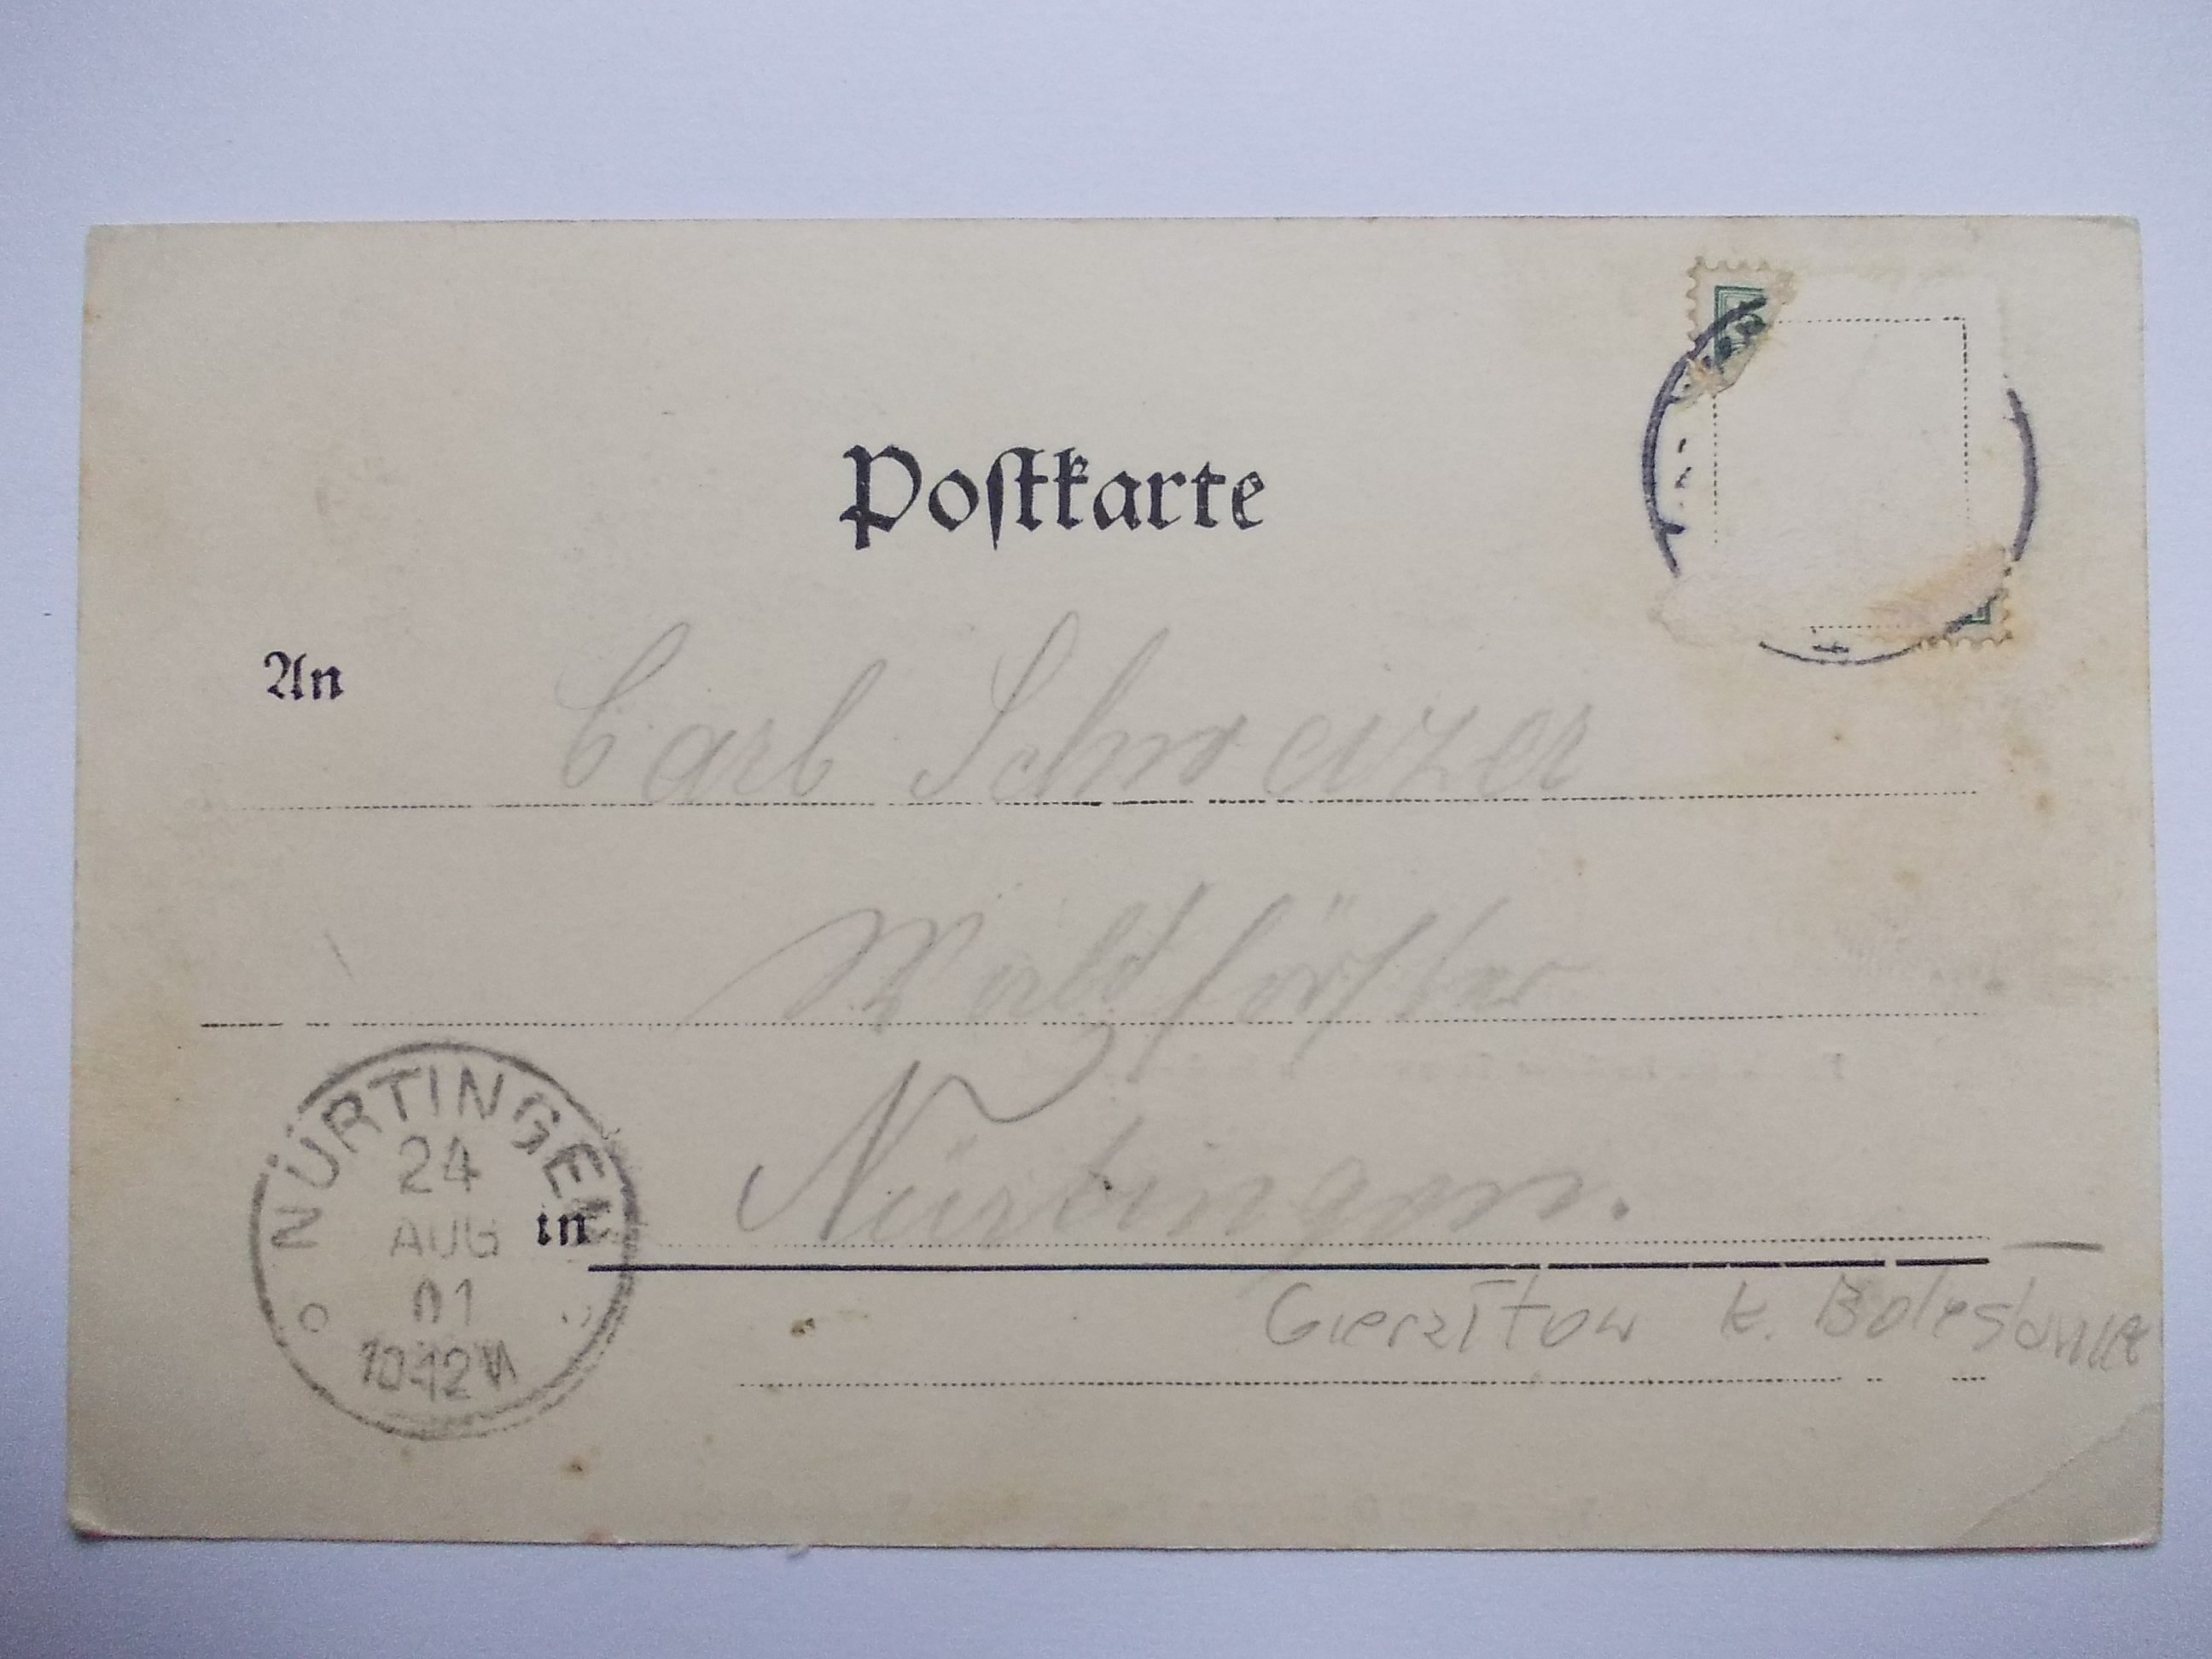 Postkarte
An Carl Schweizer
Waldförster
in Nürtingen.
NÜRTINGEN
24
AUG
01
10-12V
Gierałtów k. Bolesławca